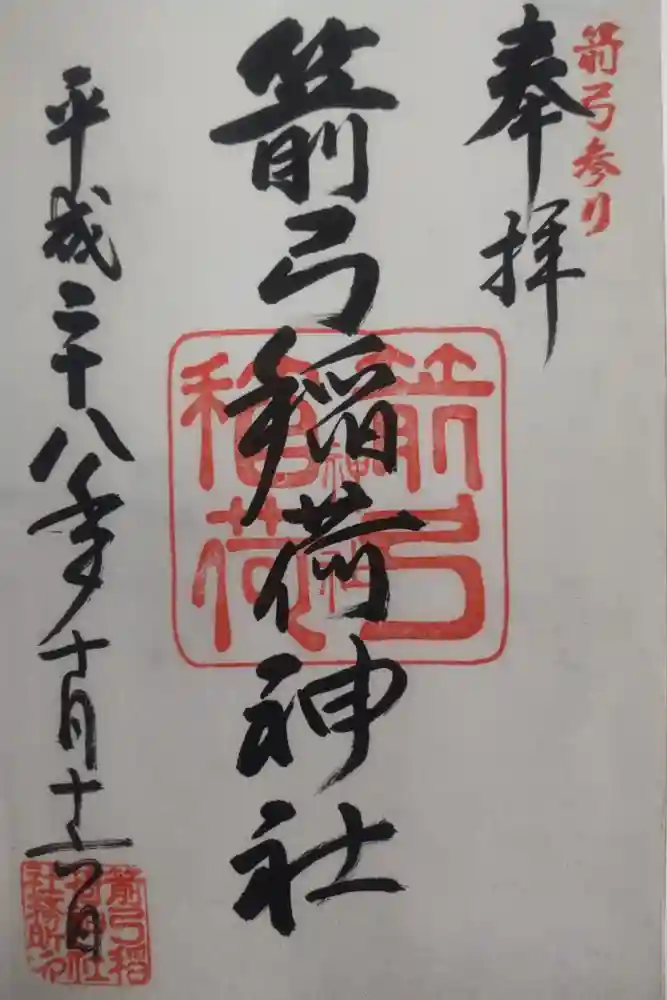 箭弓参り
奉拝
箭弓稲荷神社
箭弓
稲荷
神社
平成二十八年十月十六日
箭弓稲
荷神社
社務所之印